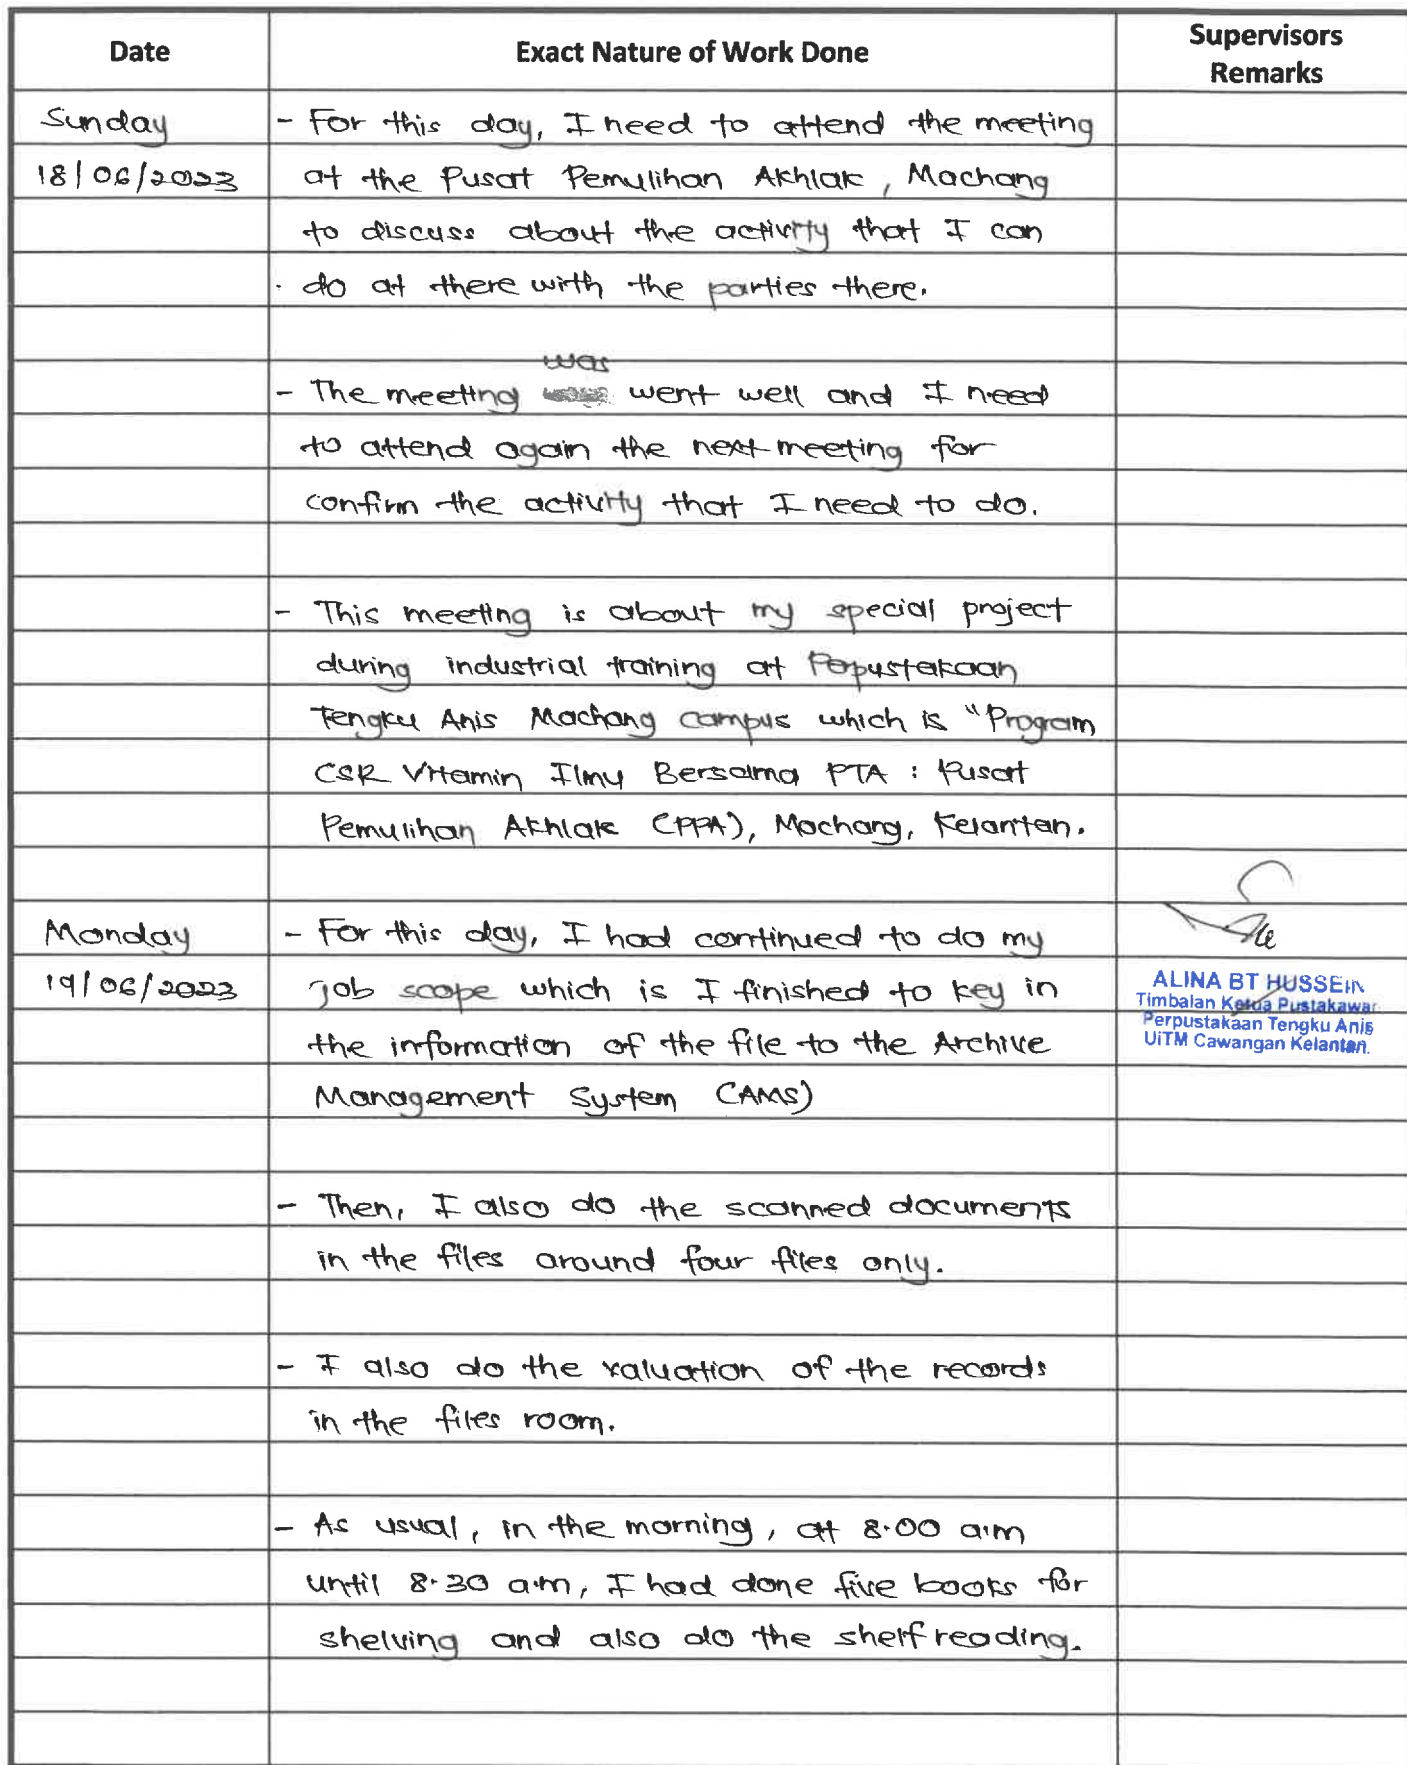 Date Exact Nature of Work Done Supervisors Remarks
Sunday - For this day, I need to attend the meeting
18/06/2023 at the Pusat Pemulihan Akhlak, Machang
to discuss about the activity that I can
do at there with the parties there.
was
- The meeting went well and I need
to attend again the next meeting for
confirm the activity that I need to do.
- This meeting is about my special project
during industrial training at Perpustakaan
Tengku Anis Machang campus which is "Program
CSR Vitamin Ilmu Bersama PTA : Pusat
Pemulihan Akhlak (PPA), Machang, Kelantan.
Monday - For this day, I had continued to do my
19/06/2023 job scope which is I finished to key in
the information of the file to the Archive
Management System (AMS)
ALINA BT HUSSEIN
Timbalan Ketua Pustakawan
Perpustakaan Tengku Anis
UiTM Cawangan Kelantan.
- Then, I also do the scanned documents
in the files around four files only.
- I also do the valuation of the records
in the files room.
- As usual, in the morning, at 8.00 a.m
until 8.30 a.m, I had done five books for
shelving and also do the shelf reading.